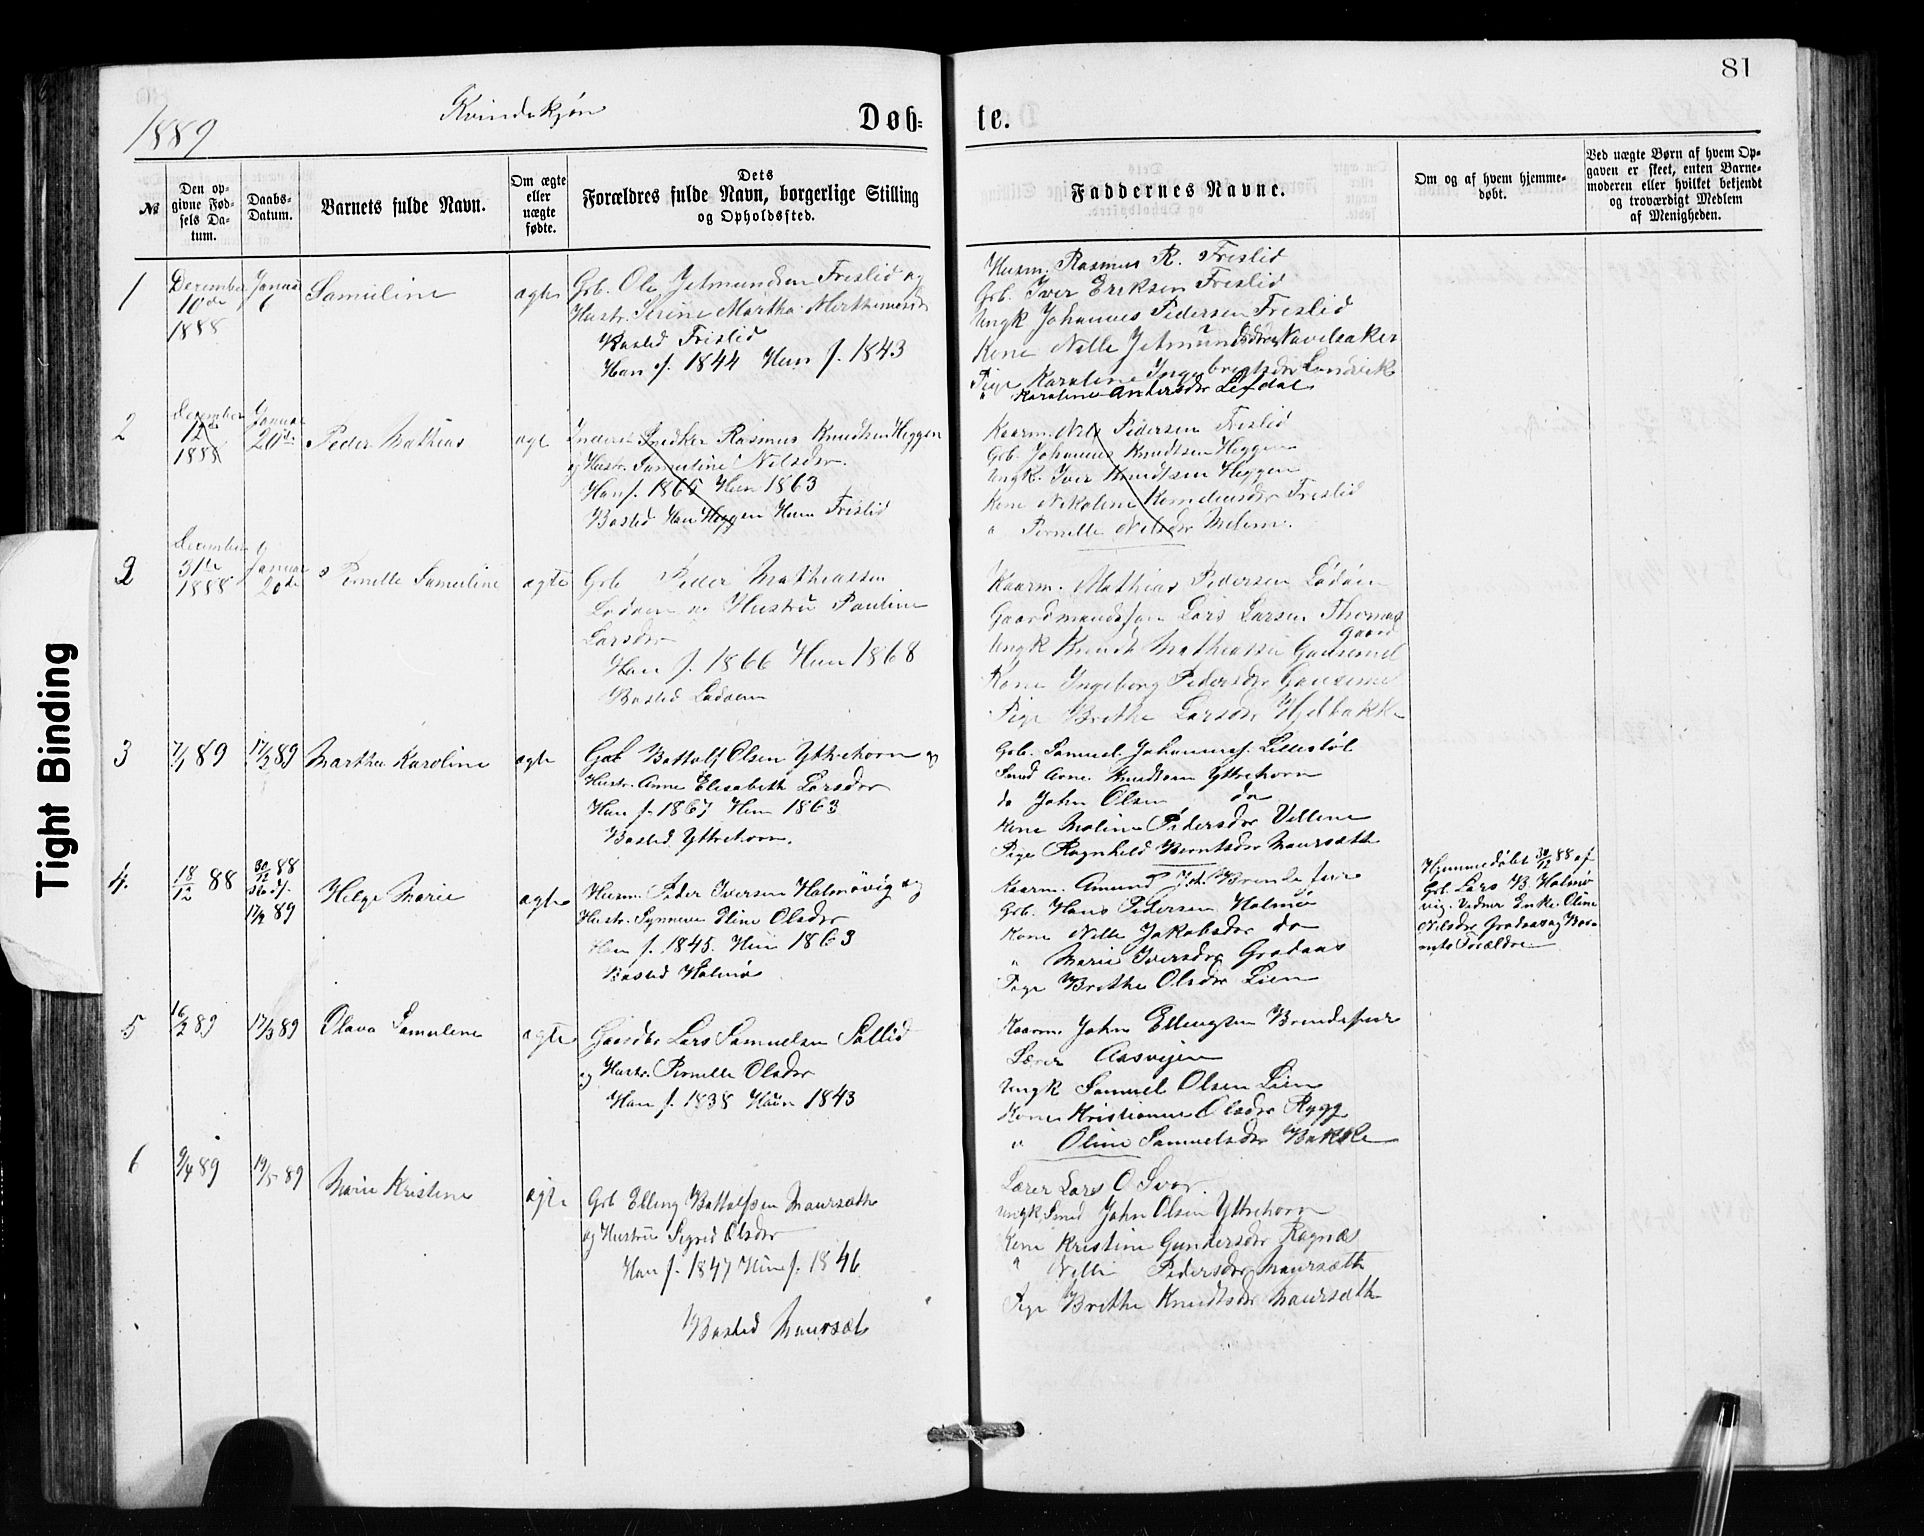 81
1889
Kvindekjøn
Døb-
te.
№
Den op-
givne Fød-
sels Da-
tum.
Daabs-
Datum.
Barnets fulde Navn.
Om ægte
eller
uægte
fødte.
Dets
Forældres fulde Navn, borgerlige Stilling
og Opholdssted.
Faddernes Navne.
Om og af hvem hjemme-
døbt.
Ved uægte Børn af hvem Op-
gaven er skeet, enten Barne-
moderen eller hvilket bekjendt
og troværdigt Medlem
af Menigheden.
1
Dezember
10de
1888
Januar
6
Samuline
ægte
Grb. Ole Jetmundsen Frislid og
Hustr. Serine Martha
Bosted Frislid
Han f. 1844 Hun f. 1843
Husm. Rasmus R. Frislid
Grb. Iver Eriksen Frislid
Ungk Johannes Pedersen Frislid
Kone Nille Jetmundsdtr Navelsaker
Pige Karoline Ingebrigtsdtr Lundevik
" Karoline Andersdtr Lefdal
2
Dezember
12te
1888
Januar
20de
Peder Mathias
ægte
Inderst Snedker Rasmus Knudsen Heggen
og Hustr. Samuline Nilsdtr.
Han f. 1865 Hun 1863
Bosted Han Heggen Hun Frislid
Kaarm. Nils Pedersen Frislid
Grb. Johannes Knudtsen Heggen
Ungk. Iver Knudtsen Heggen
Kone Nikoline Frislid
" Pernille Nilsdtr Melem.
2
Dezember
31te
1888
Januar
20de
Pernille Samuline
ægte
Grb Peder Mathiassen
Lødøen og Hustru Pauline
Larsdtr
Han f. 1866 Hun 1868
Bosted Lødøen
Kaarm. Mathias Pedersen Lødøen
Gaardmandssøn Lars Larsen Thomas
gaard
Ungk Knudt Mathiassen Gausemel
Kone Ingeborg Pedersdtr Gausemel
Pige Brithe Larsdtr Hjelbakke
3
7/1 89
17/3 89
Marthe Karoline
ægte
Grb Bottolf Olsen Yttrehorn og
Hustr. Anne Elisabeth Larsdtr
Han f. 1867 Hun 1863
Bosted Yttrehorn.
Grb. Samuel Johanness. Lillestøl
Smed Arne Knudtsen Yttrehorn
do John Olsen do
Kone Maline Pedersdtr Vellene
Pige Ragnhild Berntsdtr Maursæth
4.
18/12 88
30/12 88
17/3 89
Helge Marie
ægte
Husm. Peder Iversen Holmøvig og
Hustr. Synneve Eline Olsdtr
Han f. 1845. Hun 1863
Bosted Holmø
Kaarm. Amund Brendefur
Grb. Hans Pedersen Holmø
Kone Nille Jakobsdtr do
" Marie Iversdtr Grodaas
Pige Brithe Olsdtr Lien
Hjemmedøbt 30/12 88 af
Grb. Lars B. Holmø
vig. Vidner Enke Oline
Nilsdtr Grodaas og Bar-
nets Forældre.
5
16/2 89
17/3 89
Olava Samuline
ægte
Gaardbr Lars Samuelsen Sollid
og Hustr. Pernille Olsdtr
Han f. 1838 Hun 1843
Kaarm. John Ellingsen Brendefur
Lærer Aasvejen
Ungk Samuel Olsen Lien
Kone Kristianne Olsdtr Rygg
" Oline Samuelsdtr Bakke
6
9/4 89
19/5 89
Marie Kristine
ægte
Grb Elling Bottolfsen Maursæth
og Hustru Sigrid Olsdtr
Han f. 1847 Hun f. 1846
Bosted Maursæt
Lærer Lars O Svor.
Ungk. Smed John Olsen Yttrehorn
Kone Kristine Gundersdtr Rognæs
" Nille Pedersdtr Maursæth
Pige Brithe Knudtsdtr Maursæth
Tight Binding